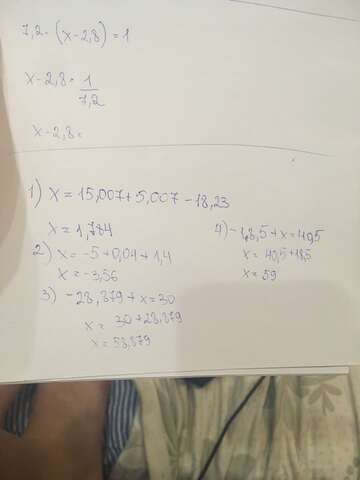 7,2 · (x-2,8) = 1
x-2,8 = 1/7,2
x-2,8 =
1) x = 15,007 + 5,007 - 18,23
x = 1,784
2) x = -5 + 0,04 + 1,4
x = -3,56
3) -28,879 + x = 30
x = 30 + 28,879
x = 58,879
4) -18,5 + x = 40,5
x = 40,5 + 18,5
x = 59